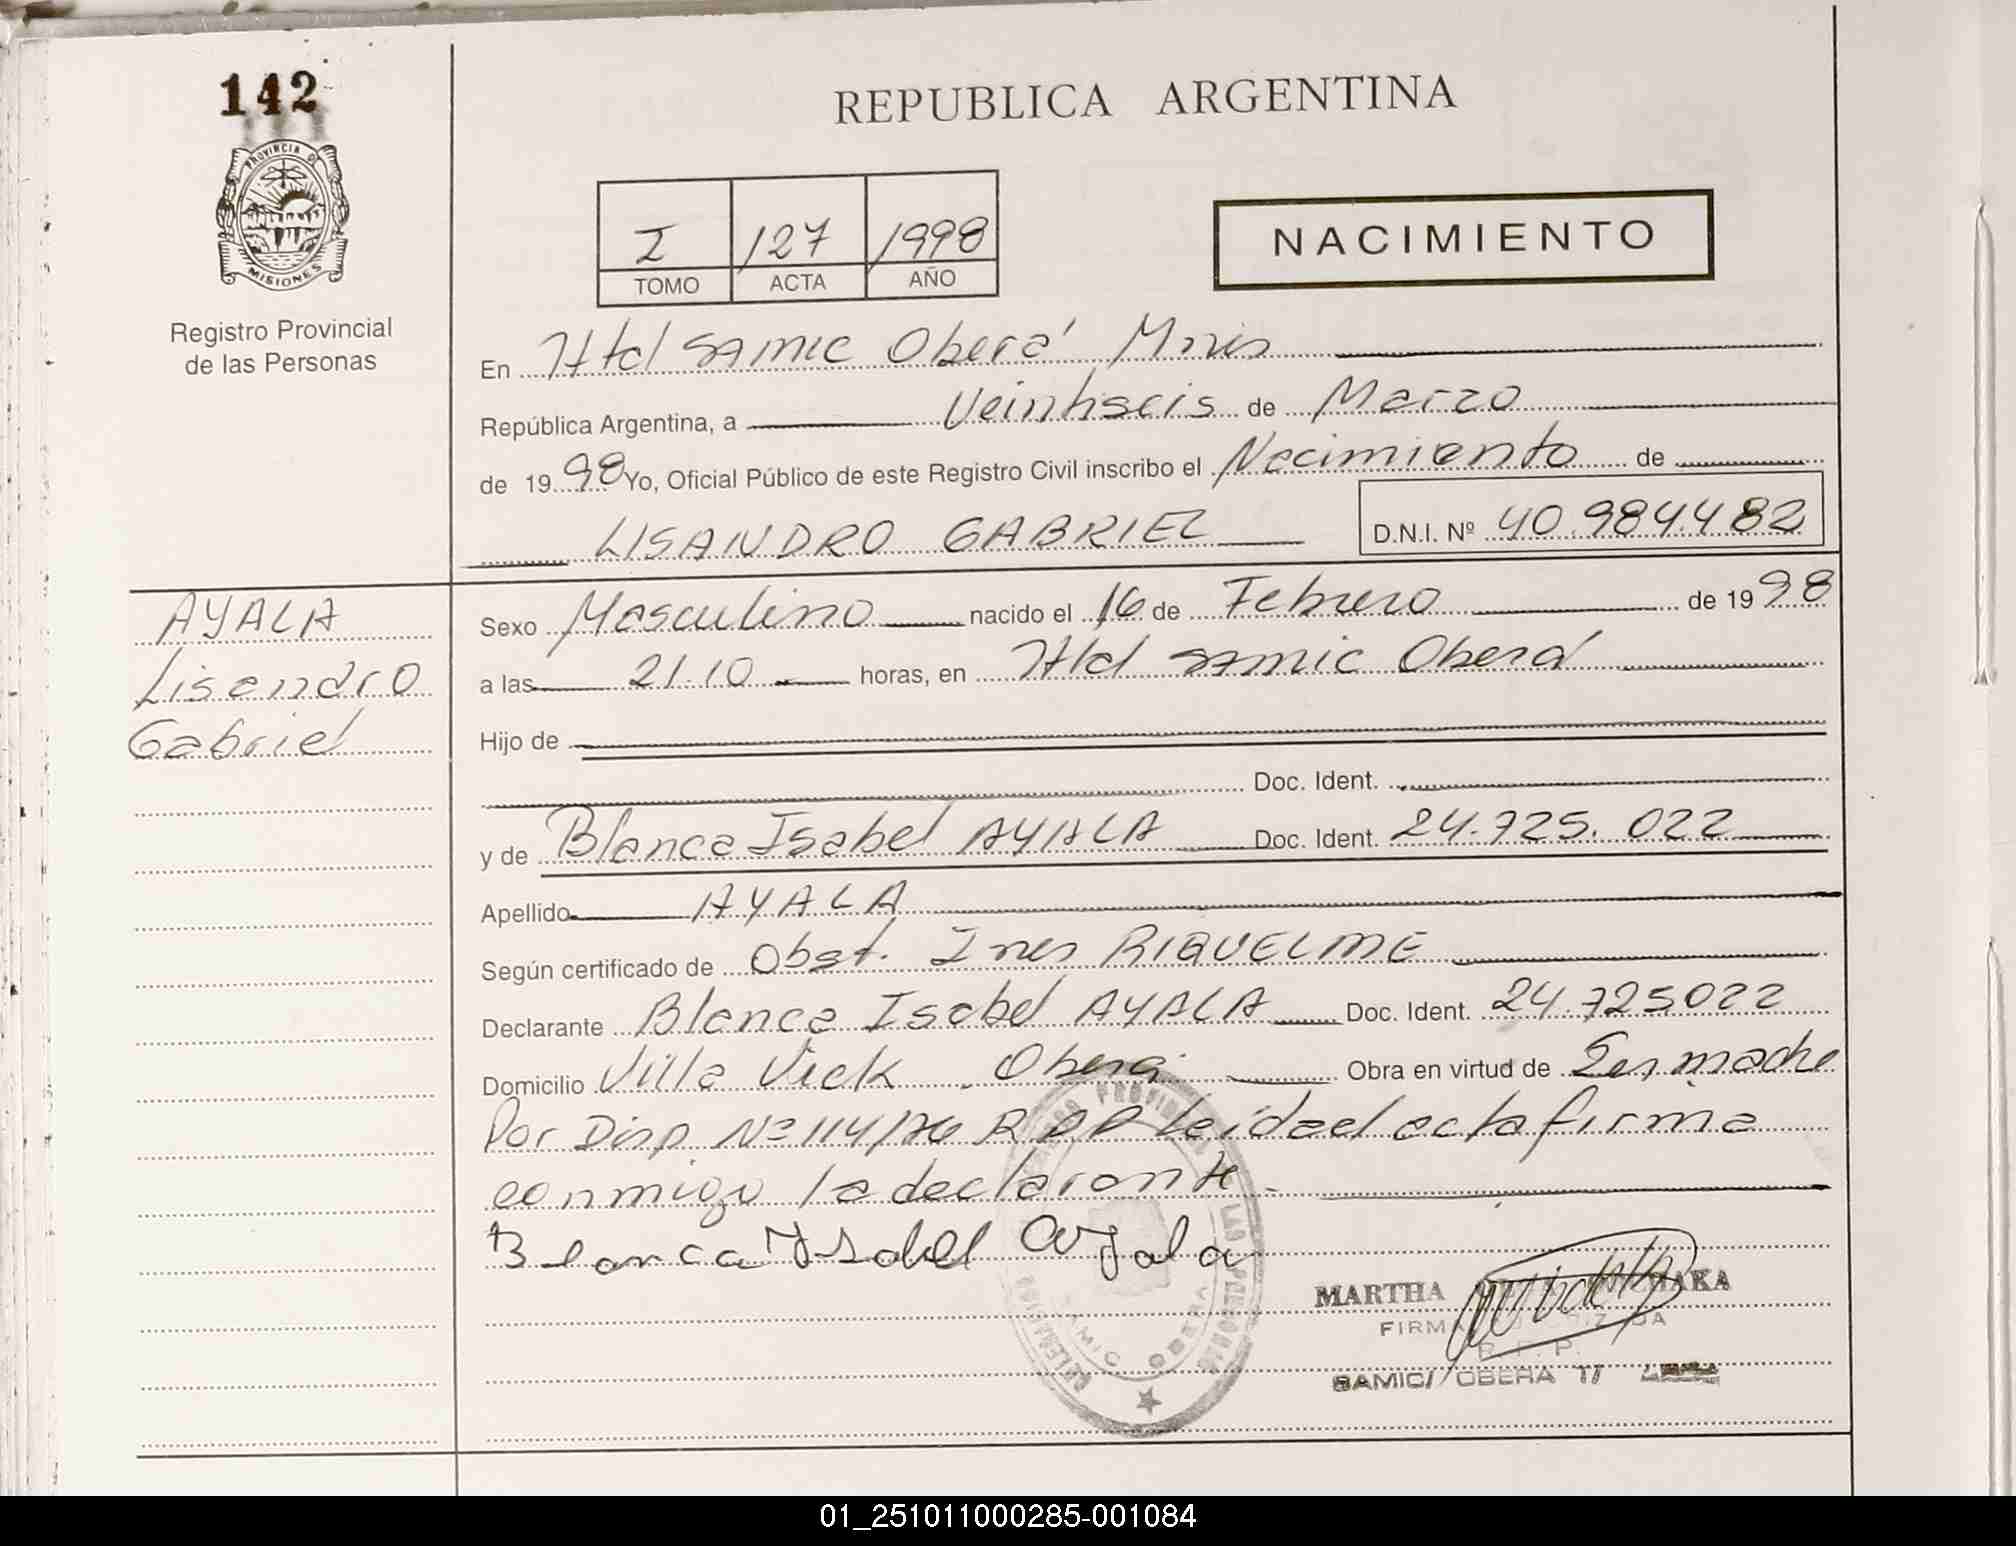 142
PROVINCIA DE
MISIONES
Registro Provincial
de las Personas
REPUBLICA ARGENTINA
I 127 1998
TOMO ACTA AÑO
NACIMIENTO
En Htal SAMIC Oberá Mnes
República Argentina, a Veintiseis de Marzo
de 1998 Yo, Oficial Público de este Registro Civil inscribo el Nacimiento de
LISANDRO GABRIEL D.N.I. Nº 40.984.482
AYALA
Lisandro
Gabriel
Sexo Masculino nacido el 16 de Febrero de 1998
a las 21.10 horas, en Htal SAMIC Oberá
Hijo de
Doc. Ident.
y de Blanca Isabel AYALA Doc. Ident. 24.725.022
Apellido AYALA
Según certificado de Obst. Ines RIQUELME
Declarante Blanca Isabel AYALA Doc. Ident. 24.725022
Domicilio Villa Vick Oberá Obra en virtud de Ser madre
Por Disp Nº 114/76 R.P.P Leida el acta firma
conmigo la declarante.
Blanca Ysabel Ayala
MARTHA
SAMIC OBERA
SAMIC/ OBERA
01_251011000285-001084